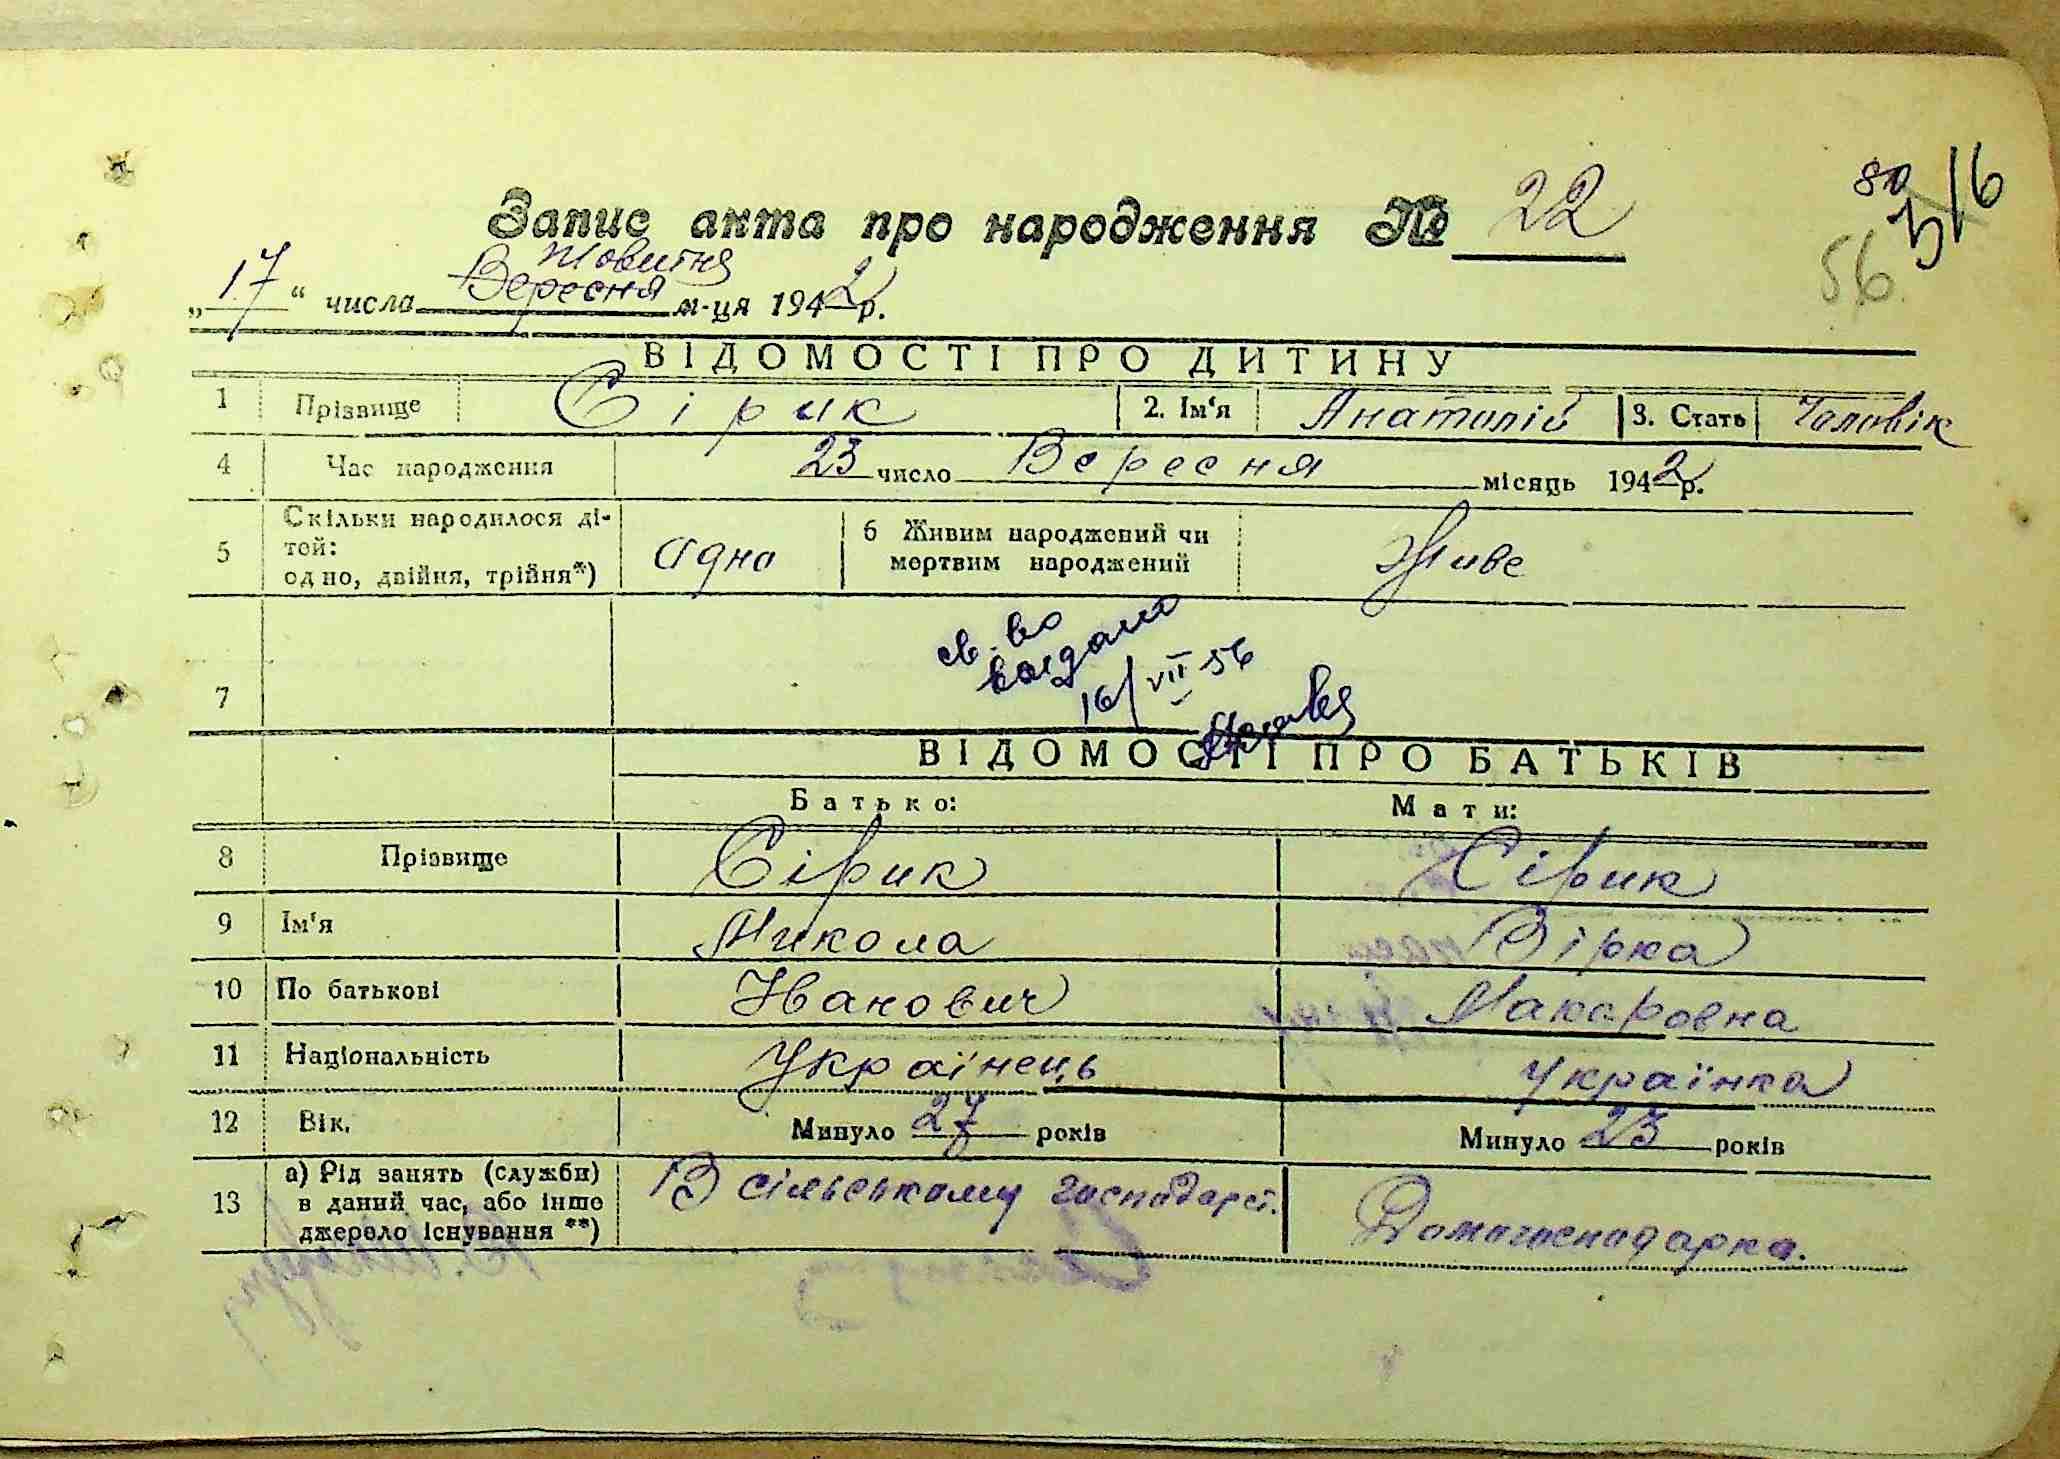 80
316
56
Запис акта про народження № 22
Жовтня
„17“ числа Вересня м-ця 1942 р.
ВІДОМОСТІ ПРО ДИТИНУ
1 Прізвище Сірик 2. Ім‘я Анатолій 3. Стать Чоловік
4 Час народження 23 число Вересня місяць 1942 р.
5 Скільки народилося ді-
тей:
одно, двійня, трійня*) одно
6 Живим народжений чи
мертвим народжений Живе
7
св-во
выдано
16/VII 56
ВІДОМОСТІ ПРО БАТЬКІВ
Батько: Мати:
8 Прізвище Сірик Сірик
9 Ім‘я Микола Вірка
10 По батькові Иванович Макаровна
11 Національність Українець Українка
12 Вік. Минуло 27 років Минуло 23 років
13 а) Рід занять (служби)
в даний час, або інше
джерело існування **) В сільському господарст. Домогосподарка.